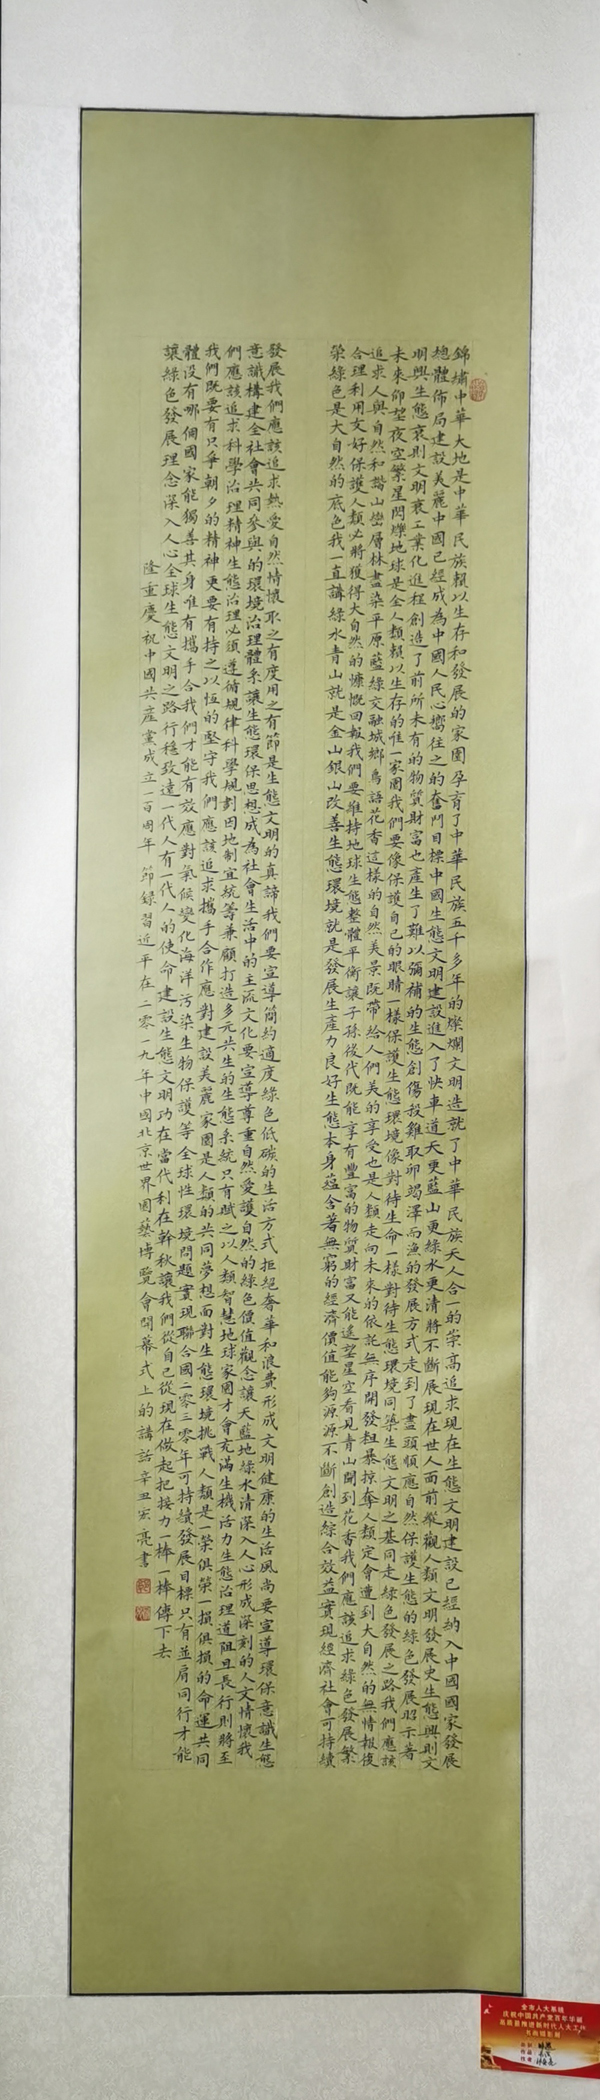 錦繡中華大地是中華民族賴以生存和發展的家園孕育了中華民族五千多年的燦爛文明造就了中華民族天人合一的崇高追求現在生態文明建設已經納入中國國家發展
總體佈局建設美麗中國已經成為中國人民心嚮往之的奮鬥目標中國生態文明建設進入了快車道天更藍山更綠水更清將不斷展現在世人面前縱觀人類文明發展史生態興則文
明興生態衰則文明衰工業化進程創造了前所未有的物質財富也產生了難以彌補的生態創傷殺雞取卵竭澤而漁的發展方式走到了盡頭順應自然保護生態的綠色發展昭示著
未來仰望夜空繁星閃爍地球是全人類賴以生存的唯一家園我們要像保護自己的眼睛一樣保護生態環境像對待生命一樣對待生態環境同築生態文明之基同走綠色發展之路我們應該
追求人與自然和諧山巒層林盡染平原藍綠交融城鄉鳥語花香這樣的自然美景既帶給人們美的享受也是人類走向未來的依託無序開發粗暴掠奪人類定會遭到大自然的無情報復
合理利用友好保護人類必將獲得大自然的慷慨回報我們要維持地球生態整體平衡讓子孫後代既能享有豐富的物質財富又能遙望星空看見青山聞到花香我們應該追求綠色發展繁
榮綠色是大自然的底色我一直講綠水青山就是金山銀山改善生態環境就是發展生產力良好生態本身蘊含著無窮的經濟價值能夠源源不斷創造綜合效益實現經濟社會可持續
發展我們應該追求熱愛自然情懷取之有度用之有節是生態文明的真諦我們要宣導簡約適度綠色低碳的生活方式拒絕奢華和浪費形成文明健康的生活風尚要宣導環保意識生態
意識構建全社會共同參與的環境治理體系讓生態環保思想成為社會生活中的主流文化要宣導尊重自然愛護自然的綠色價值觀念讓天藍地綠水清深入人心形成深刻的人文情懷我
們應該追求科學治理精神生態治理必須遵循規律科學規劃因地制宜統籌兼顧打造多元共生的生態系統只有賦之以人類智慧地球家園才會充滿生機活力生態治理道阻且長行則將至
我們既要有只爭朝夕的精神更要有持之以恆的堅守我們應該追求攜手合作應對建設美麗家園是人類的共同夢想面對生態環境挑戰人類是一榮俱榮一損俱損的命運共同
體沒有哪個國家能獨善其身唯有攜手合我們才能有效應對氣候變化海洋污染生物保護等全球性環境問題實現聯合國二零三零年可持續發展目標只有並肩同行才能
讓綠色發展理念深入人心全球生態文明之路行穩致遠一代人有一代人的使命建設生態文明功在當代利在幹秋讓我們從自己從現在做起把接力一棒一棒傳下去
隆重慶祝中國共產黨成立一百周年 節錄習近平在二零一九年中國北京世界園藝博覽會開幕式上的講話辛丑宏亮書
全市人大系统
庆祝中国共产党百年华诞
高质量推进新时代人大工作
书画摄影展